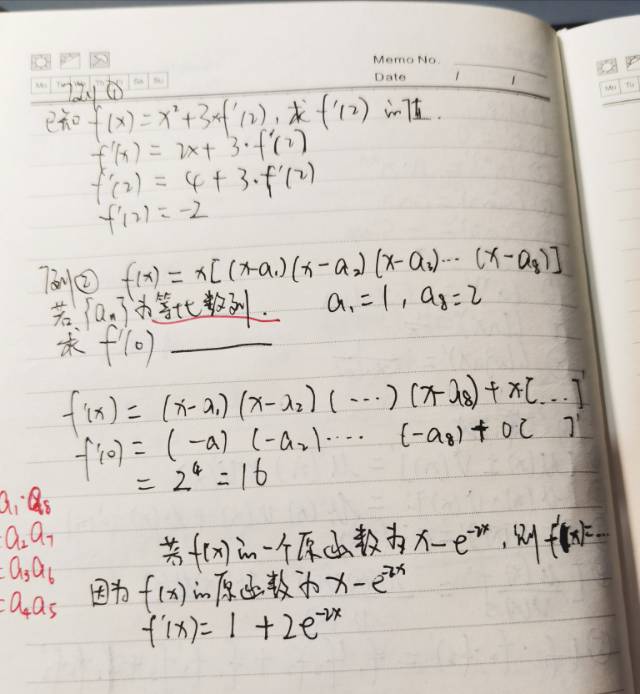 Memo No.
Mo Tu Sa Su
Date / /
例①
已知 f(x)=x²+3xf'(2), 求 f'(2) 的值.
f'(x) = 2x + 3·f'(2)
f'(2) = 4 + 3·f'(2)
f'(2) = -2
例② f(x) = x[(x-a₁)(x-a₂)(x-a₃)···(x-a₈)]
若{aₙ}为等比数列. a₁=1, a₈=2
求 f'(0)
f'(x) = (x-a₁)(x-a₂)(···)(x-a₈)+x[...]'
f'(0) = (-a)(-a₂)····(-a₈)+0[ ]'
= 2⁴ = 16
a₁·a₈
=a₂a₇
=a₃a₆
=a₄a₅
若f(x)的一个原函数为x-e⁻²ˣ, 则f'(x)=...
因为f(x)的原函数为x-e⁻²ˣ
f'(x)= 1+2e⁻²ˣ
Mo Tu